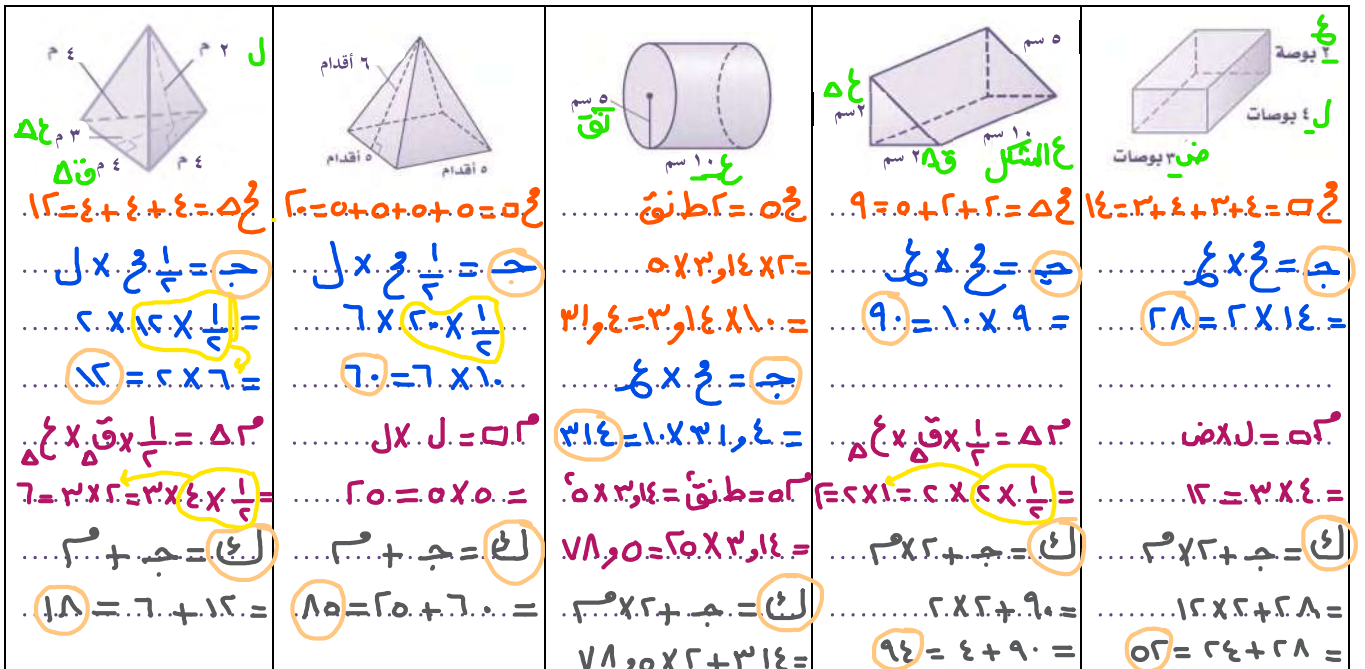 ع
٢ بوصة
ل ٤ بوصات
ض ٣ بوصات
مح□ = ٤+٣+٤+٣ = ١٤
جـ = مح × ع
= ١٤ × ٢ = ٢٨
م□ = ل×ض
= ٤ × ٣ = ١٢
ك = جـ + ٢×م
= ٢٨ + ٢×١٢
= ٢٨ + ٢٤ = ٥٢
٥ سم
ع∆
٢ سم
١٠ سم
ع الشكل
ق∆ ٢ سم
مح∆ = ٢+٢+٥ = ٩
جـ = مح × ع
= ٩ × ١٠ = ٩٠
م∆ = ١/٢ × ق∆ × ع∆
= ١/٢ × ٢ × ٢ = ١×٢ = ٢
ك = جـ + ٢×م
= ٩٠ + ٢×٢
= ٩٠ + ٤ = ٩٤
٥ سم
نق
ع ١٠ سم
مح○ = ٢ط نق
= ٢×٣,١٤×٥
= ١٠×٣,١٤ = ٣١,٤
جـ = مح × ع
= ٣١,٤ × ١٠ = ٣١٤
م○ = ط نق٢ = ٣,١٤×٥٢
= ٣,١٤ × ٢٥ = ٧٨,٥
ك = جـ + ٢×م
= ٣١٤ + ٢×٧٨,٥
٦ أقدام
٥ أقدام
٥ أقدام
مح□ = ٥+٥+٥+٥ = ٢٠
جـ = ١/٢ مح × ل
١/٢ × ٢٠ × ٦
١٠ × ٦ = ٦٠
م□ = ل × ل
= ٥ × ٥ = ٢٥
ك = جـ + م
= ٦٠ + ٢٥ = ٨٥
ل
٢ م
٤ م
ع∆ ٣ م
٤ م
ق∆ ٤ م
مح∆ = ٤+٤+٤ = ١٢
جـ = ١/٢ مح × ل
= ١/٢ × ١٢ × ٢
= ٦ × ٢ = ١٢
م∆ = ١/٢ × ق∆ × ع∆
= ١/٢ × ٤ × ٣ = ٢×٣ = ٦
ك = جـ + م
= ١٢ + ٦ = ١٨